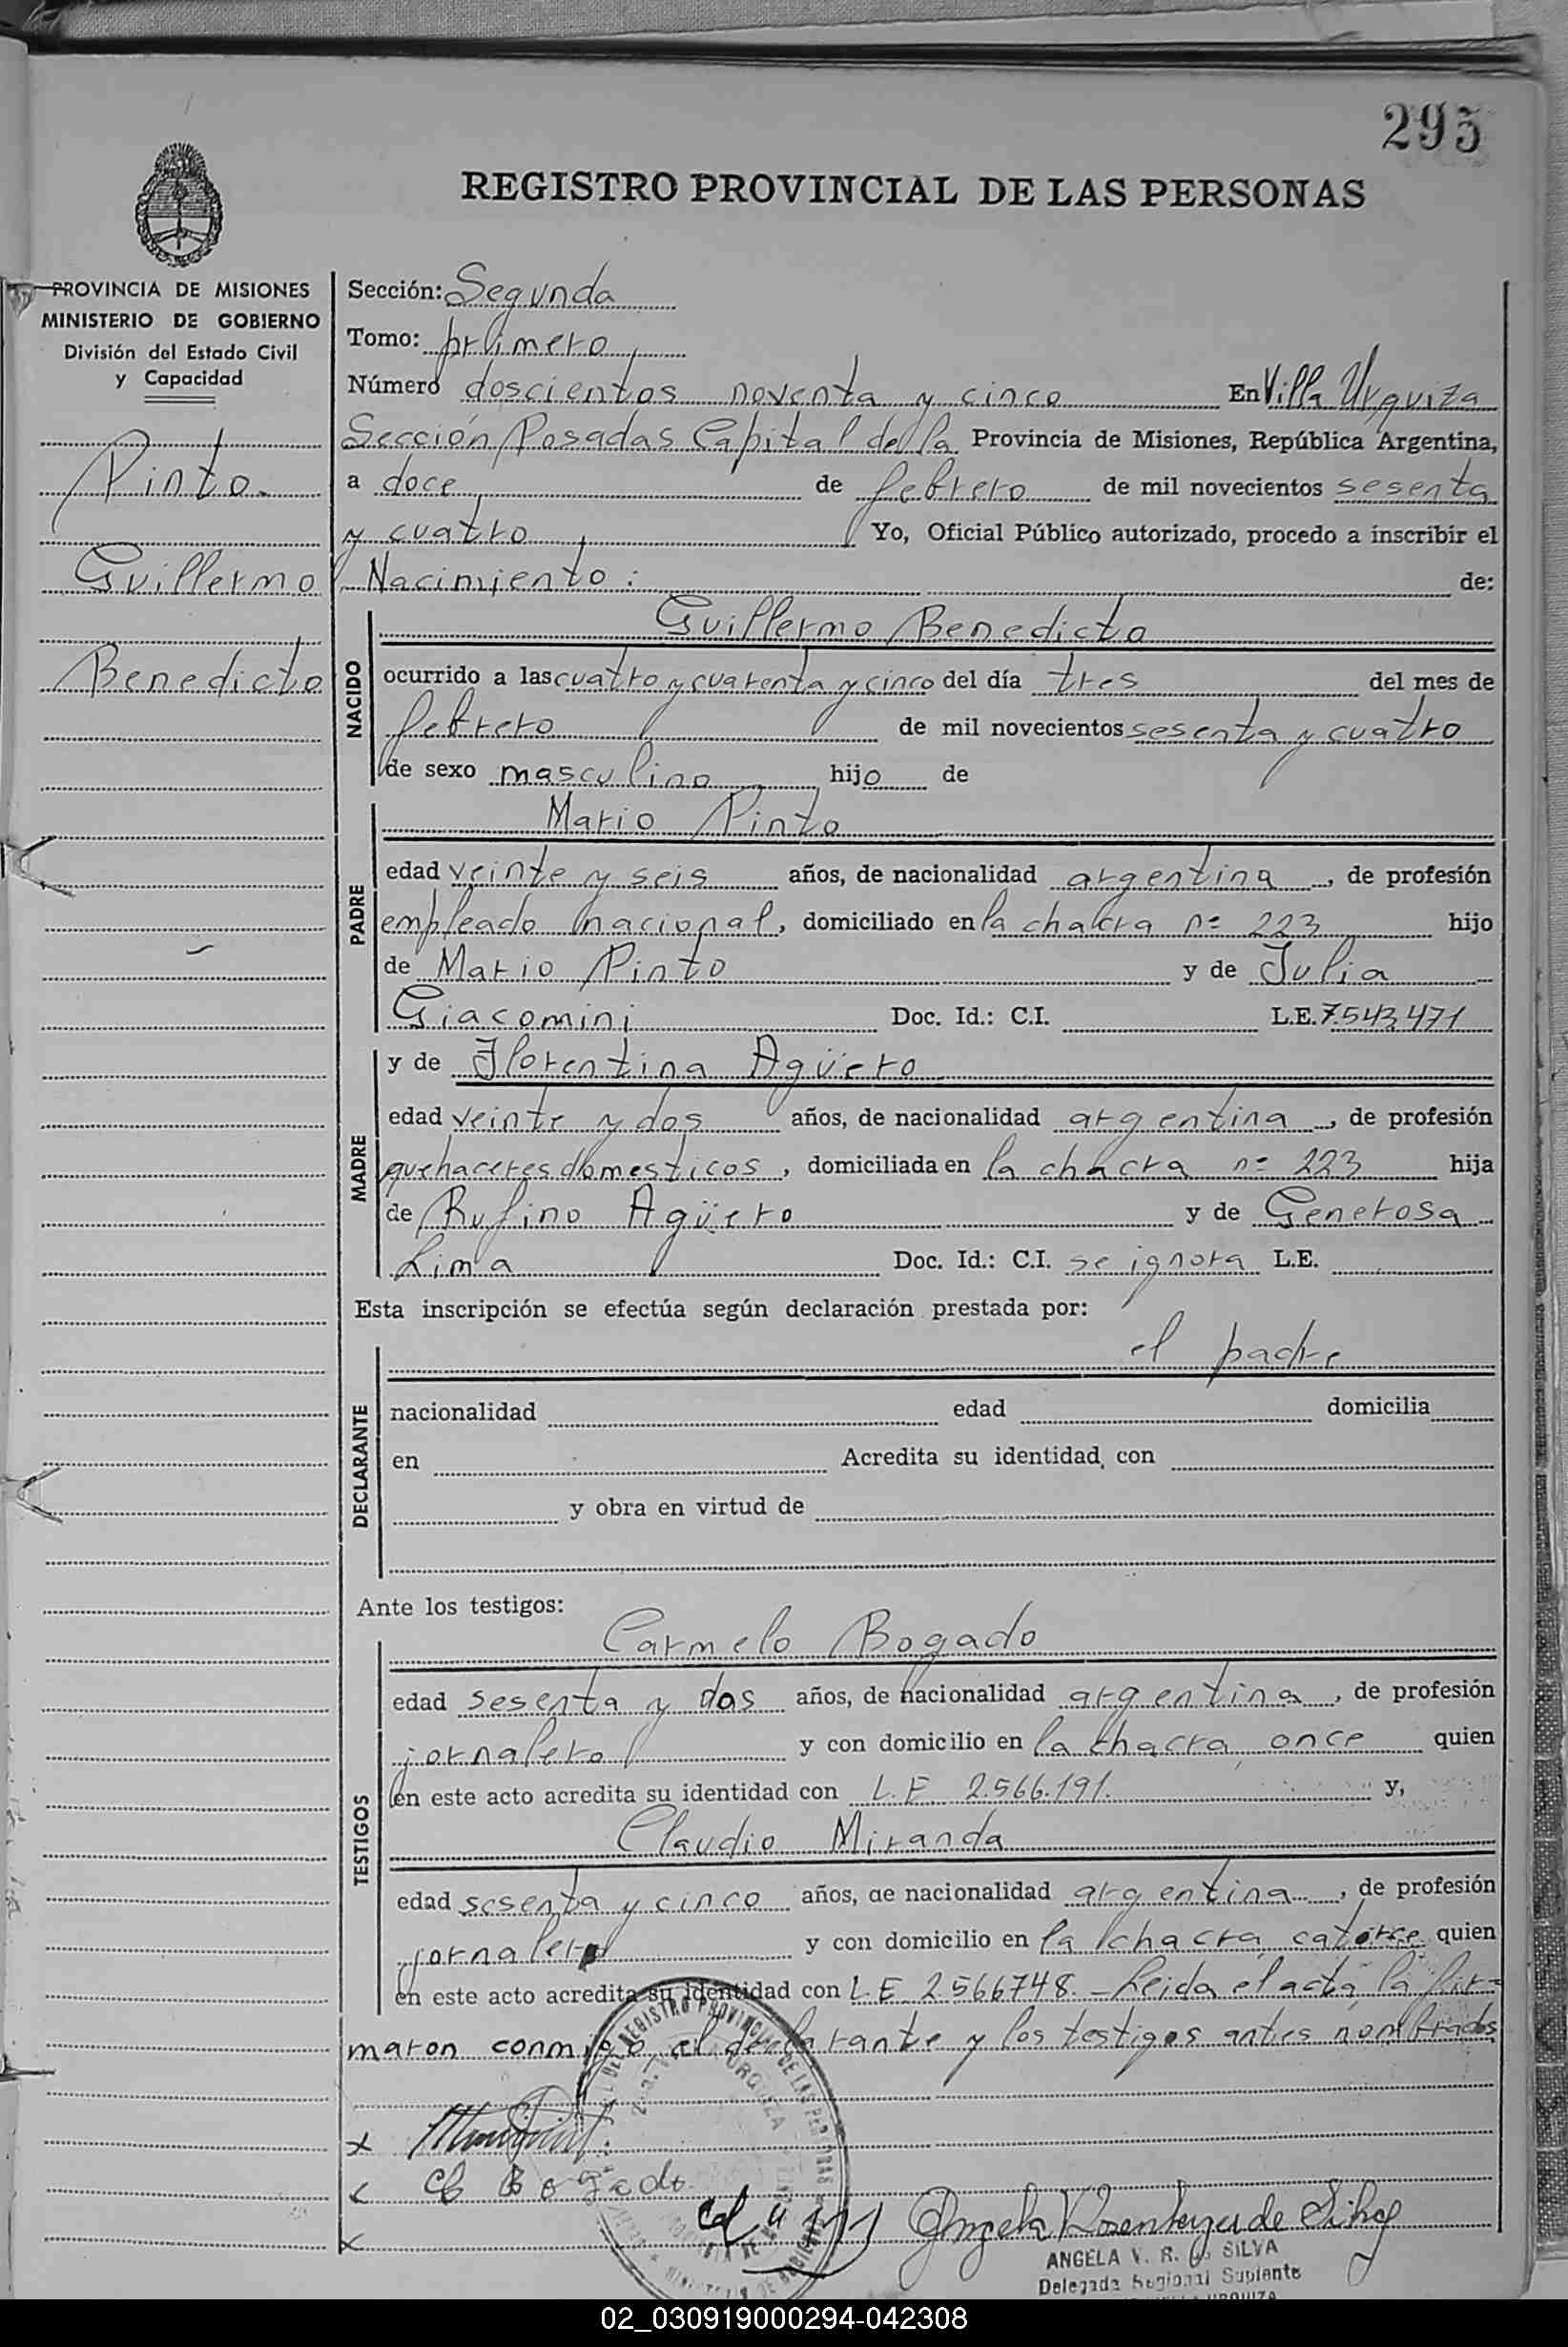 295
REGISTRO PROVINCIAL DE LAS PERSONAS
PROVINCIA DE MISIONES
MINISTERIO DE GOBIERNO
División del Estado Civil
y Capacidad
Pinto
Guillermo
Benedicto
Sección: Segunda
Tomo: primero
Número doscientos noventa y cinco En Villa Urquiza
Sección Posadas Capital de la Provincia de Misiones, República Argentina,
a doce de febrero de mil novecientos sesenta
y cuatro Yo, Oficial Público autorizado, procedo a inscribir el
Nacimiento: de:
NACIDO
Guillermo Benedicto
ocurrido a las cuatro y cuarenta y cinco del día tres del mes de
febrero de mil novecientos sesenta y cuatro
de sexo masculino hijo de
PADRE
Mario Pinto
edad veinte y seis años, de nacionalidad argentina, de profesión
empleado nacional, domiciliado en la chakra nº 223 hijo
de Mario Pinto y de Julia
Giacomini Doc. Id.: C.I. L.E. 7.543.471
MADRE
y de Florentina Agüero
edad veinte y dos años, de nacionalidad argentina, de profesión
quehaceres domesticos, domiciliada en la chacra nº 223 hija
de Rufino Agüero y de Generosa
Lima Doc. Id.: C.I. se ignora L.E.
Esta inscripción se efectúa según declaración prestada por:
DECLARANTE
el padre
nacionalidad edad domicilia
en Acredita su identidad, con
y obra en virtud de
Ante los testigos:
TESTIGOS
Carmelo Bogado
edad sesenta y dos años, de nacionalidad argentina, de profesión
jornalero y con domicilio en la chacra once quien
en este acto acredita su identidad con L.E. 2.566.191. y,
Claudio Miranda
edad sesenta y cinco años, de nacionalidad argentina, de profesión
jornalero y con domicilio en la chacra catorce quien
en este acto acredita su identidad con L.E 2.566748. – Leida el acta, la fir-
maron conmigo el declarante y los testigos antes nombrados
C Bogado
ANGELA V. R. de SILVA
Delegada Regional Suplente
02_030919000294-042308